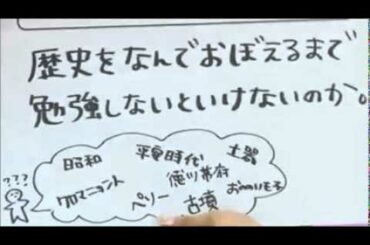 歴史をなんでおぼえるまで
勉強しないといけないのか。
昭和
平安時代
土器
徳川幕府
クロマニョント
ペリー
古墳
???